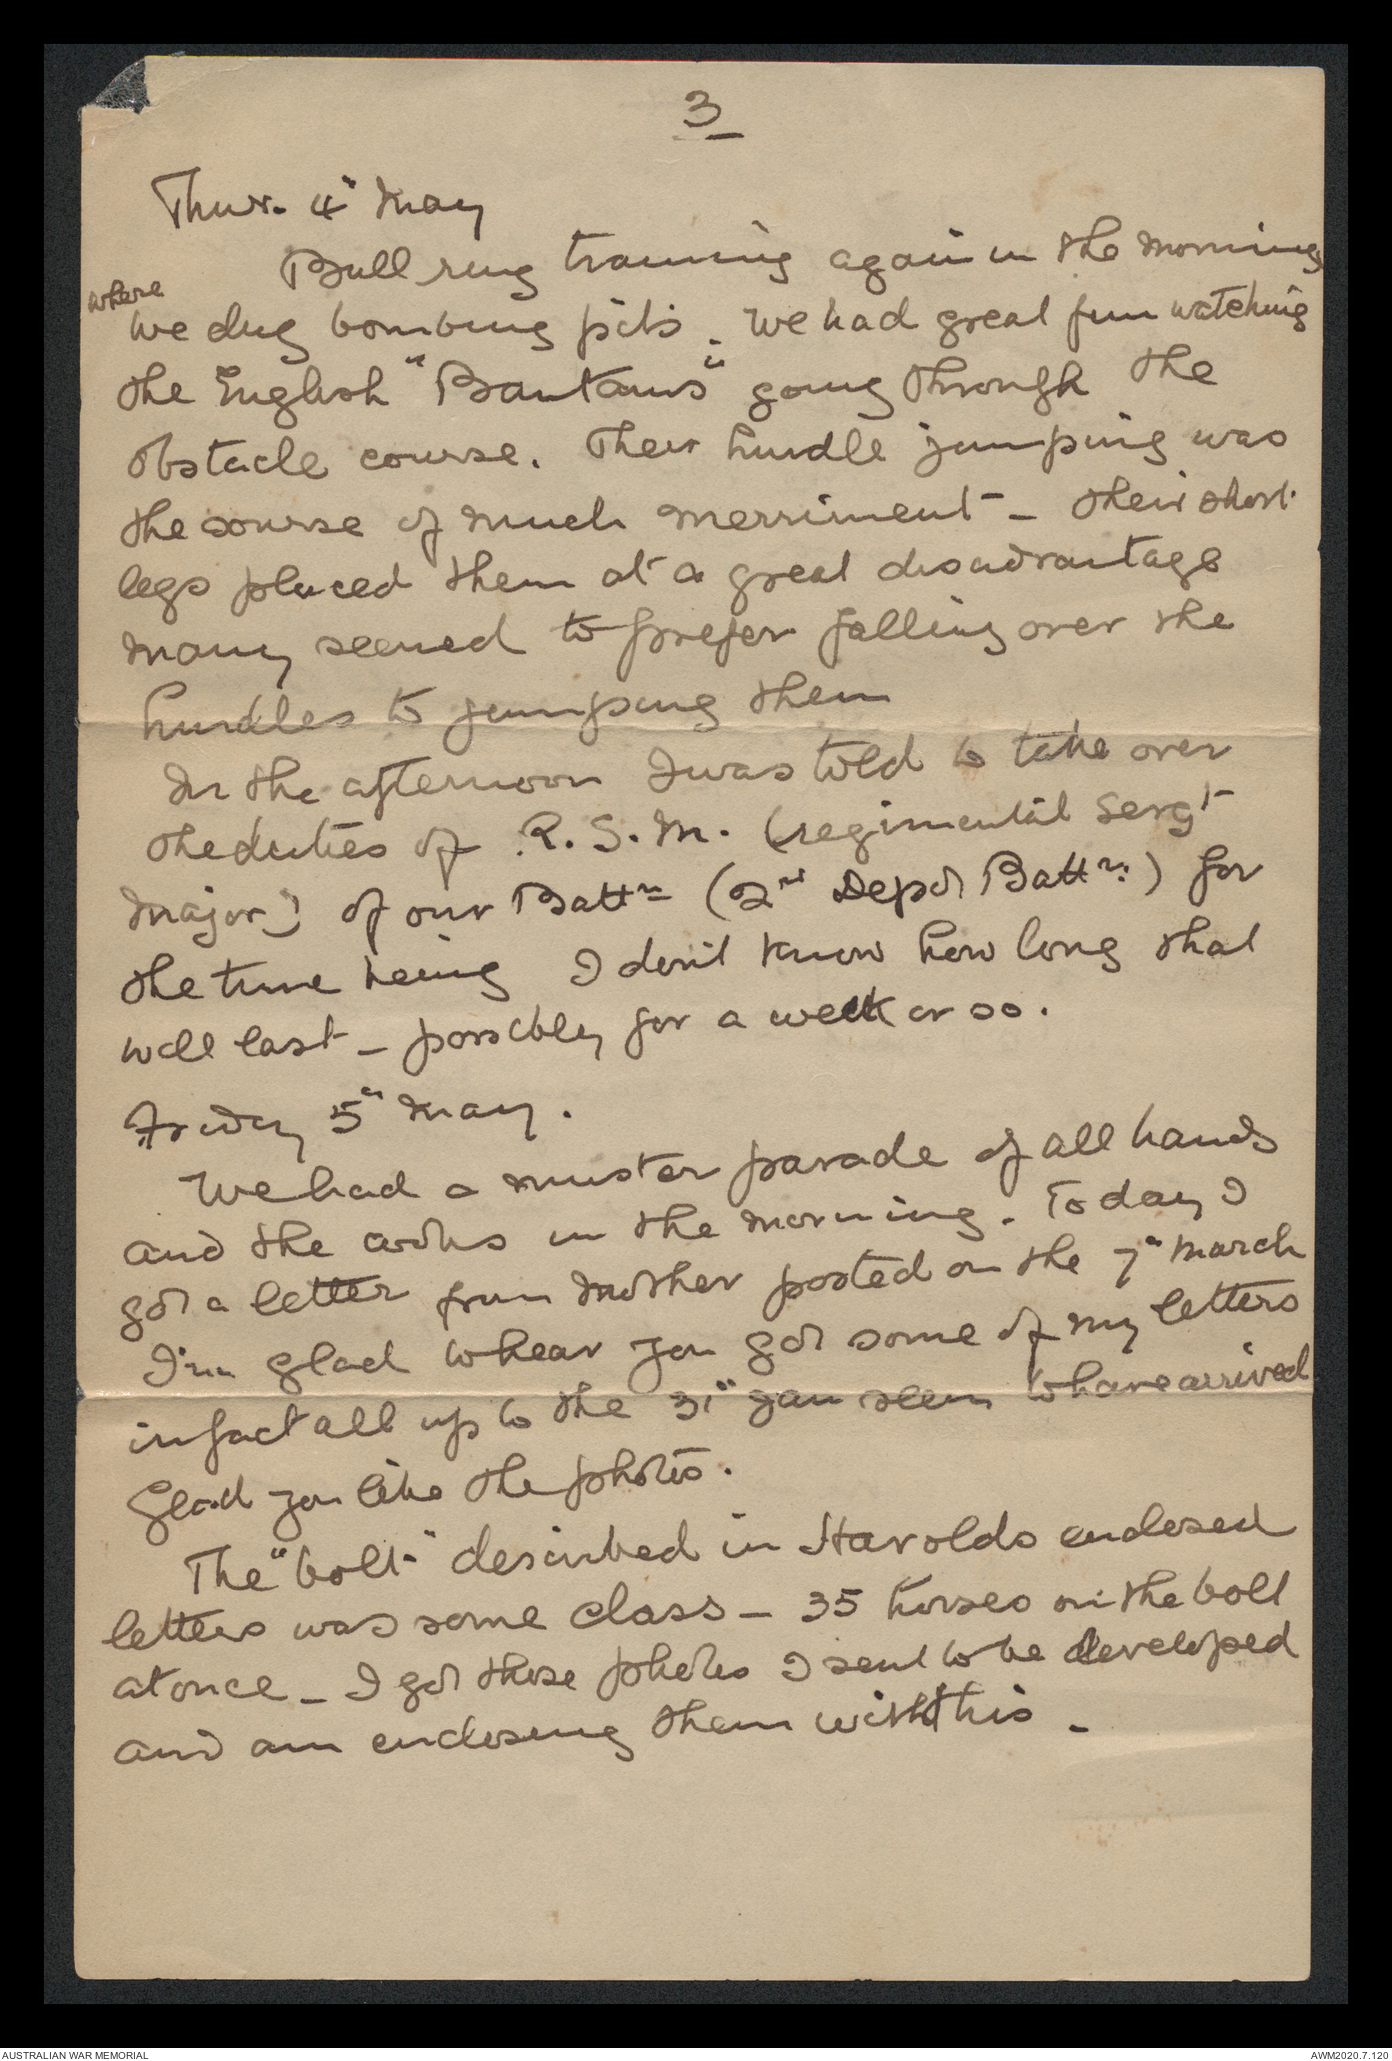 3
Thur. 4" May
Bull ring training again in the morning
where
we dug bombing pits. We had great fun watching
the English "Bantams" going through the
obstacle course. Their hurdle jumping was
the sourse of much merriment - their short
legs placed them at a great disadvantage
many seemed to prefer falling over the
hurdles to jumping them
In the afternoon I was told to take over
the duties of R.S.M. (regimental Sergt
Major) of our Battn (2nd Depot Battn.) for
the time being I don't know how long that
will last - possibly for a week or so.
Friday 5" May.
We had a muster parade of all hands
and the cooks in the morning. Today I
got a letter from Mother posted on the 7" March
I'm glad to hear you got some of my letters
in fact all up to the 31" Jan seem to have arrived
Glad you like the photos.
The "bolt" described in Harolds enclosed
letters was some class - 35 horses on the bolt
at once - I got those photos I sent to be developed
and am enclosing them with this -
AUSTRALIAN WAR MEMORIAL
AWM2020.7.120